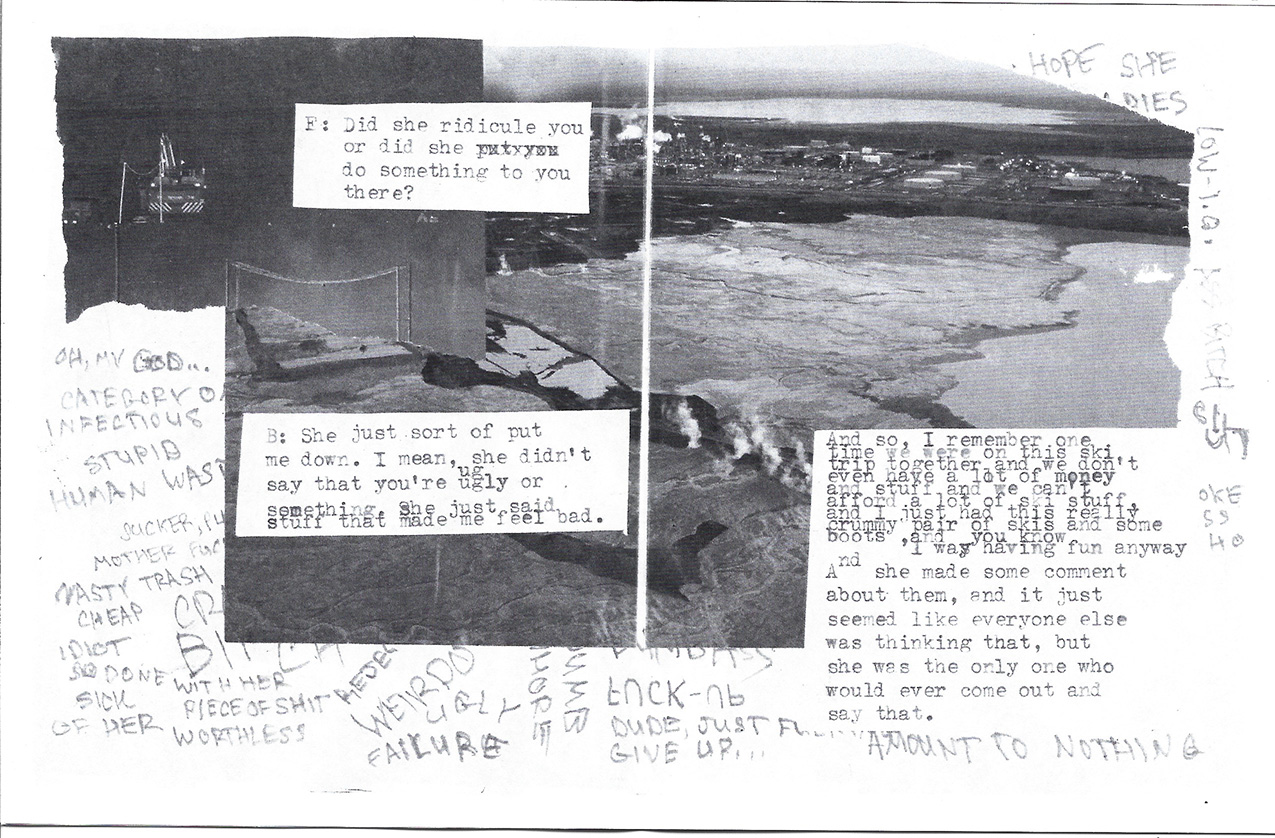 HOPE SHE
DIES
LOW-I.Q.
BITCH
F: Did she ridicule you
or did she putxyxu
do something to you
there?
B: She just sort of put
me down. I mean, she didn't
ug
say that you're ugly or .
something. She just said
stuff that made me feel bad.
And so, I remember one
time we were on this ski
trip together and we don't
even have a lot of money
and stuff and we can't
afford a lot of ski stuff,
and I just had this really
crummy pair of skis and some
boots ,and you know
I way having fun anyway
And she made some comment
about them, and it just
seemed like everyone else
was thinking that, but
she was the only one who
would ever come out and
say that.
OH, MY GOD...
CATEGORY O
INFECTIOUS
STUPID
HUMAN WAST
SUCKER, FU
MOTHER FUC
NASTY TRASH
CHEAP
CR
IDIOT
BITCH
SO DONE
WITH HER
SICK
PIECE OF SHIT
OF HER
WORTHLESS
WEIRDO
UGLY
FAILURE
WHORE
DUMB
DUMBASS
FUCK-UP
DUDE, JUST
GIVE UP...
AMOUNT TO NOTHING
OKE
SS
HO